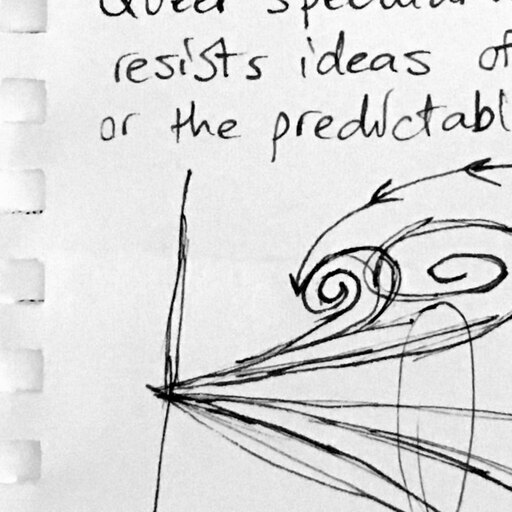 Queer
resists ideas of
or the predictabl